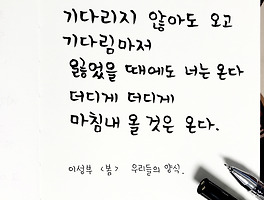 기다리지 않아도 오고
기다림마저
잃었을 때에도 너는 온다
더디게 더디게
마침내 올 것은 온다.
이성부 <봄> 우리들의 양식.